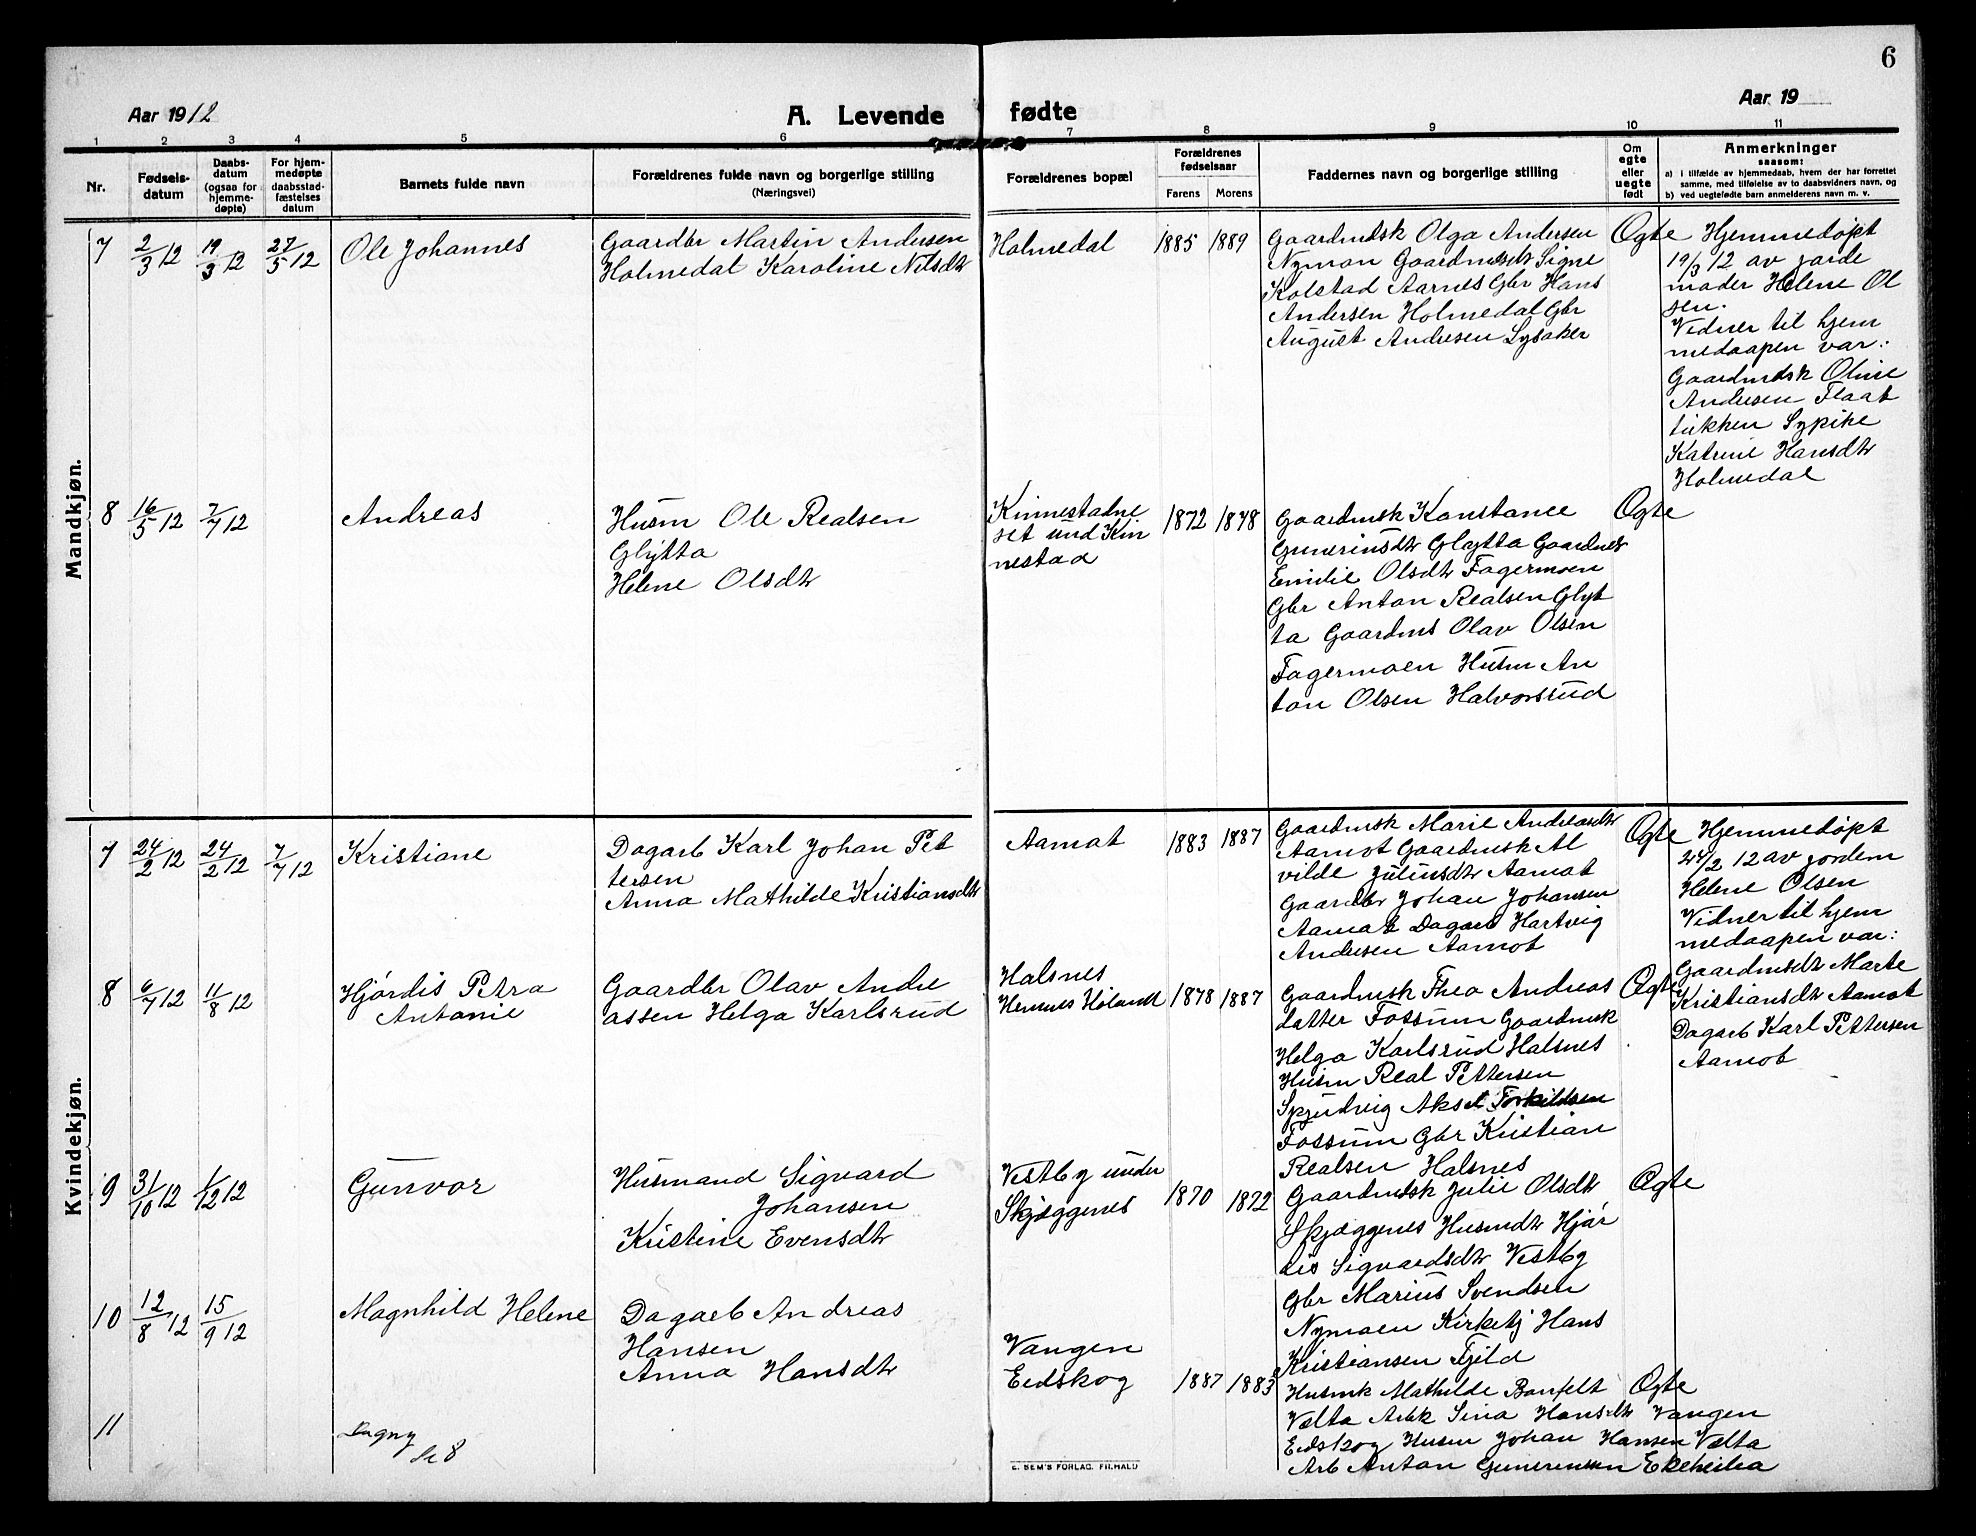 6
Aar 1912
A. Levende fødte
Aar 19
1 2 3 4 5 6 7 8 9 10 11
Nr.
Fødsels-
datum
Daabs-
datum
(ogsaa for
hjemme-
døpte)
For hjem-
medøpte
daabsstad-
fæstelses
datum
Barnets fulde navn
Forældrenes fulde navn og borgerlige stilling
(Næringsvei)
Forældrenes bopæl
Forældrenes
fødselsaar
Farens Morens
Faddernes navn og borgerlige stilling
Om
egte
eller
uegte
født
Anmerkninger
saasom:
a) i tilfælde av hjemmedaab, hvem der har forrettet
samme, med tilføielse av to daabsvidners navn, og
b) ved uegtefødte barn anmelderens navn m. v.
Mandkjøn.
7 2/3 12 19/3 12 27/5 12 Ole Johannes
Gaardbr Martin Andersen
Holmedal Karoline Nilsdtr
Holmedal 1885 1889
Gaardmdsk Olga Andersen
Nymon Gaardmdsdtr Signe
Kolstad Aarnes Gbr Hans
Andersen Holmedal Gbr
August Andresen Lysaker
Ogte
Hjemmedøpt
19/3 12 av jorde
moder Helene Ol
sen.
Vidner til hjem
medaapen var:
Gaardmdsk Oline
Andresen Flaat
tukken Sypike
Katrine Hansdtr
Holmedal
8 16/5 12 7/7 12 Andreas
Husm Ole Realsen
Glytta
Helene Olsdtr
Kinnestadne
set und Kin
nestad
1872 1878
Gaardmsk Konstance
Gunerinsdtr Glytta Gaardmdtr
Emilie Olsdtr Fagermoen
Gbr Anton Realsen Glyt
ta Gaardms Olav Olsen
Fagermoen Husm An
ton Olsen Halvorsrud
Ogte
Kvindekjøn.
7 24/2 12 24/2 12 7/7 12 Kristiane
Dagarb Karl Johan Pet
tersen
Anna Mathilde Kristiansdtr
Aamot 1883 1887
Gaardmsk Marie Andreasdtr
Aamot Gaardmsk Al
vilde Juliusdtr Aamot
Gaardbr Johan Johansen
Aamot Dagarb Hartvig
Andersen Aamot
Ogte
Hjemmedøpt
24/2 12 av jordem
Helene Olsen
Vidner til hjem
medaapen var:
Gaardmsdtr Marte
Kristiansdtr Aamot
Dagarb Karl Pettersen
Aamot
8 6/7 12 11/8 12 Hjørdis Petra
Antonie
Gaardbr Olav Andre
assen Helga Karlsrud
Halsnes
Hemnes Høland
1878 1887
Gaardmsk Thea Andreas
datter Fossum Gaardmsk
Helga Karlsrud Halsnes
Husm Real Pettersen
Spjudvig Aksel Torkildsen
Fossum Gbr Kristian
Realsen Halsnes
Ogte
9 31/10 12 1/12 12 Gunvor
Husmand Sigvard
Johansen
Kristine Evensdtr
Vestby under
Skjæggenes
1870 1872
Gaardmdsk Julie Olsdtr
Skjæggenes Husmdtr Hjør
dis Sigvardsdtr Vestby
Gbr Marius Svendsen
Nymoen Kirketj Hans
Kristiansen Fjeld
Ægte
10 12/8 12 15/9 12 Magnhild Helene
Dagarb Andreas
Hansen
Anna Hansdtr
Vangen
Eidskog
1887 1883
Husmk Mathilde Banfelt
Vælta Arbk Sina Hansdtr Vangen
Eidskog Husm Johan Hansen Vælta
Arb Anton Gunerinsen Ekeheiha
Ogte
11 Dagny
Se 8
E. SEM'S FORLAG. FR.HALD